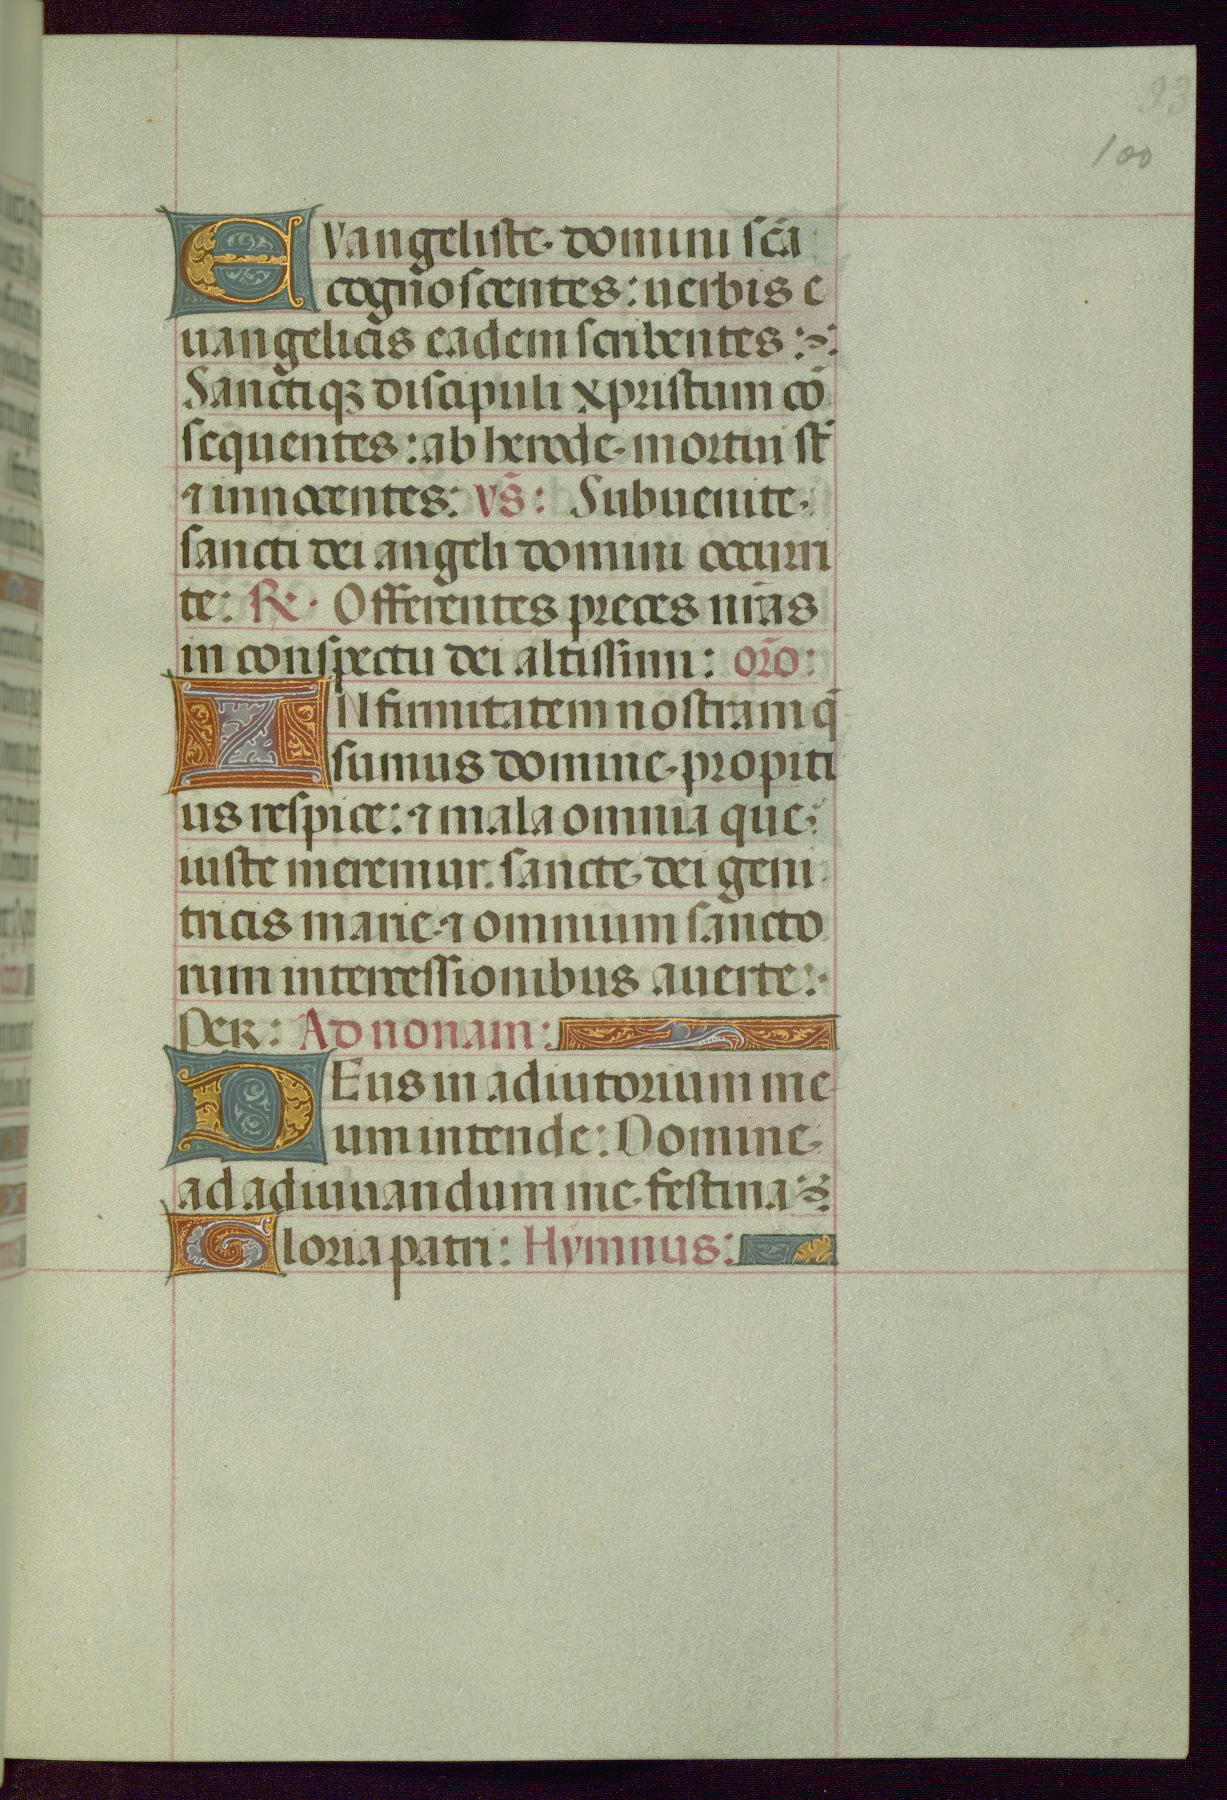 93
100
EVangeliste. domini scā
cognoscentes: uerbis e
uangelicis eadem scribentes:
Sanctiqꝫ discipuli xpristum cō
sequentes: ab herode. mortui st̄
⁊ innocentes: Vs̄: Subuenite.
sancti dei angeli domini occurri
te: ℟. Offerentes preces nr̄as
in conspectu dei altissimi: or̄o:
INfirmitatem nostram q̄
sumus domine. propiti
us respice: ⁊ mala omnia que
iuste meremur. sancte. dei geni
tricis marie. ⁊ omnium sancto
rum interressionibus auerte:
Per: Ad nonam:
DEus in adiutorium me
um intende: Domine.
ad adiuuandum me. festina
Gloria patri: Hymnus: